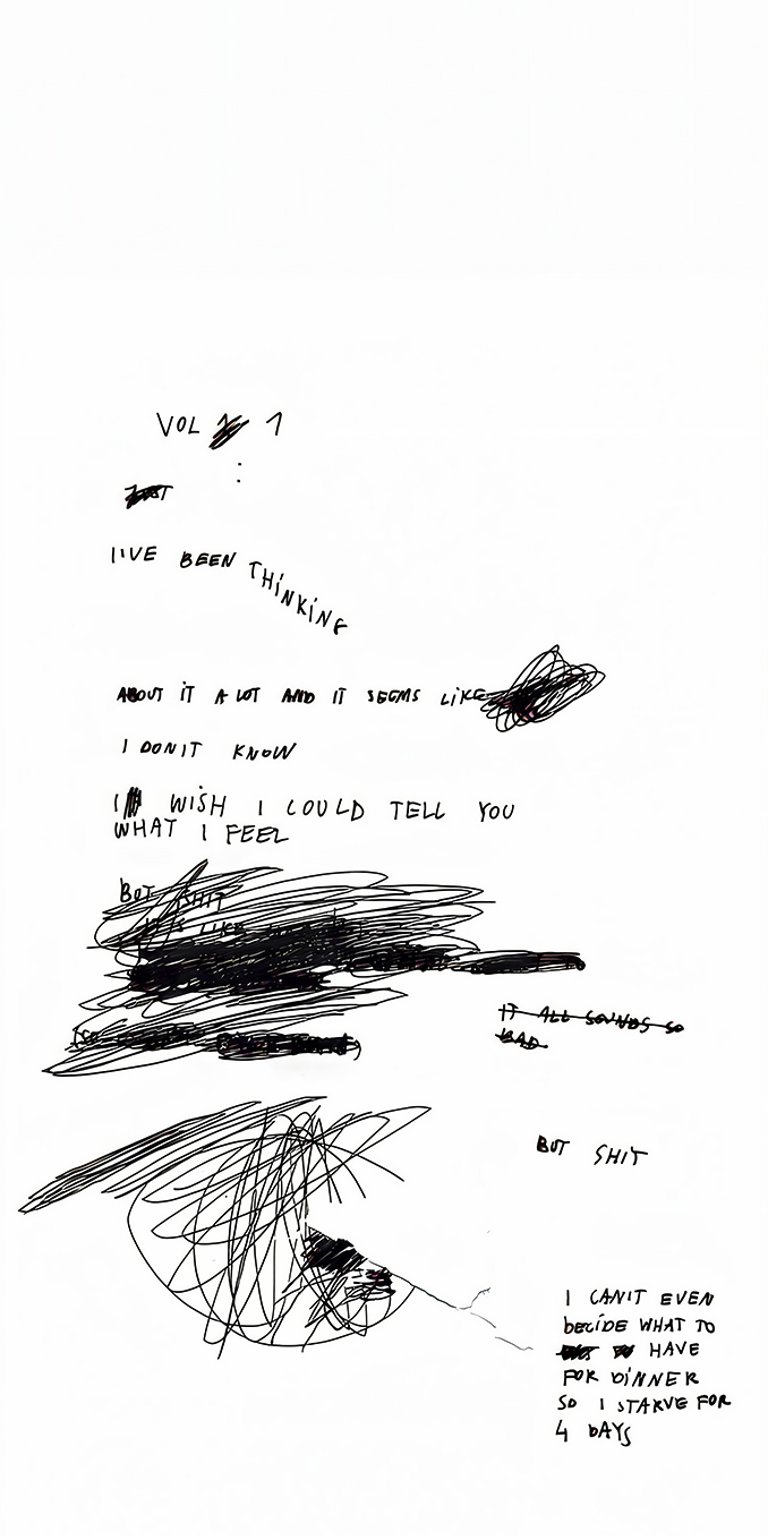 VOL 1
:
I'VE BEEN THINKING
ABOUT IT A LOT AND IT SEEMS LIKE
I DON'T KNOW
I WISH I COULD TELL YOU
WHAT I FEEL
BUT SHIT
IT'S LIKE
IT ALL SOUNDS SO
BAD
BUT SHIT
I CAN'T EVEN
DECIDE WHAT TO
HAVE
FOR DINNER
SO I STARVE FOR
4 DAYS